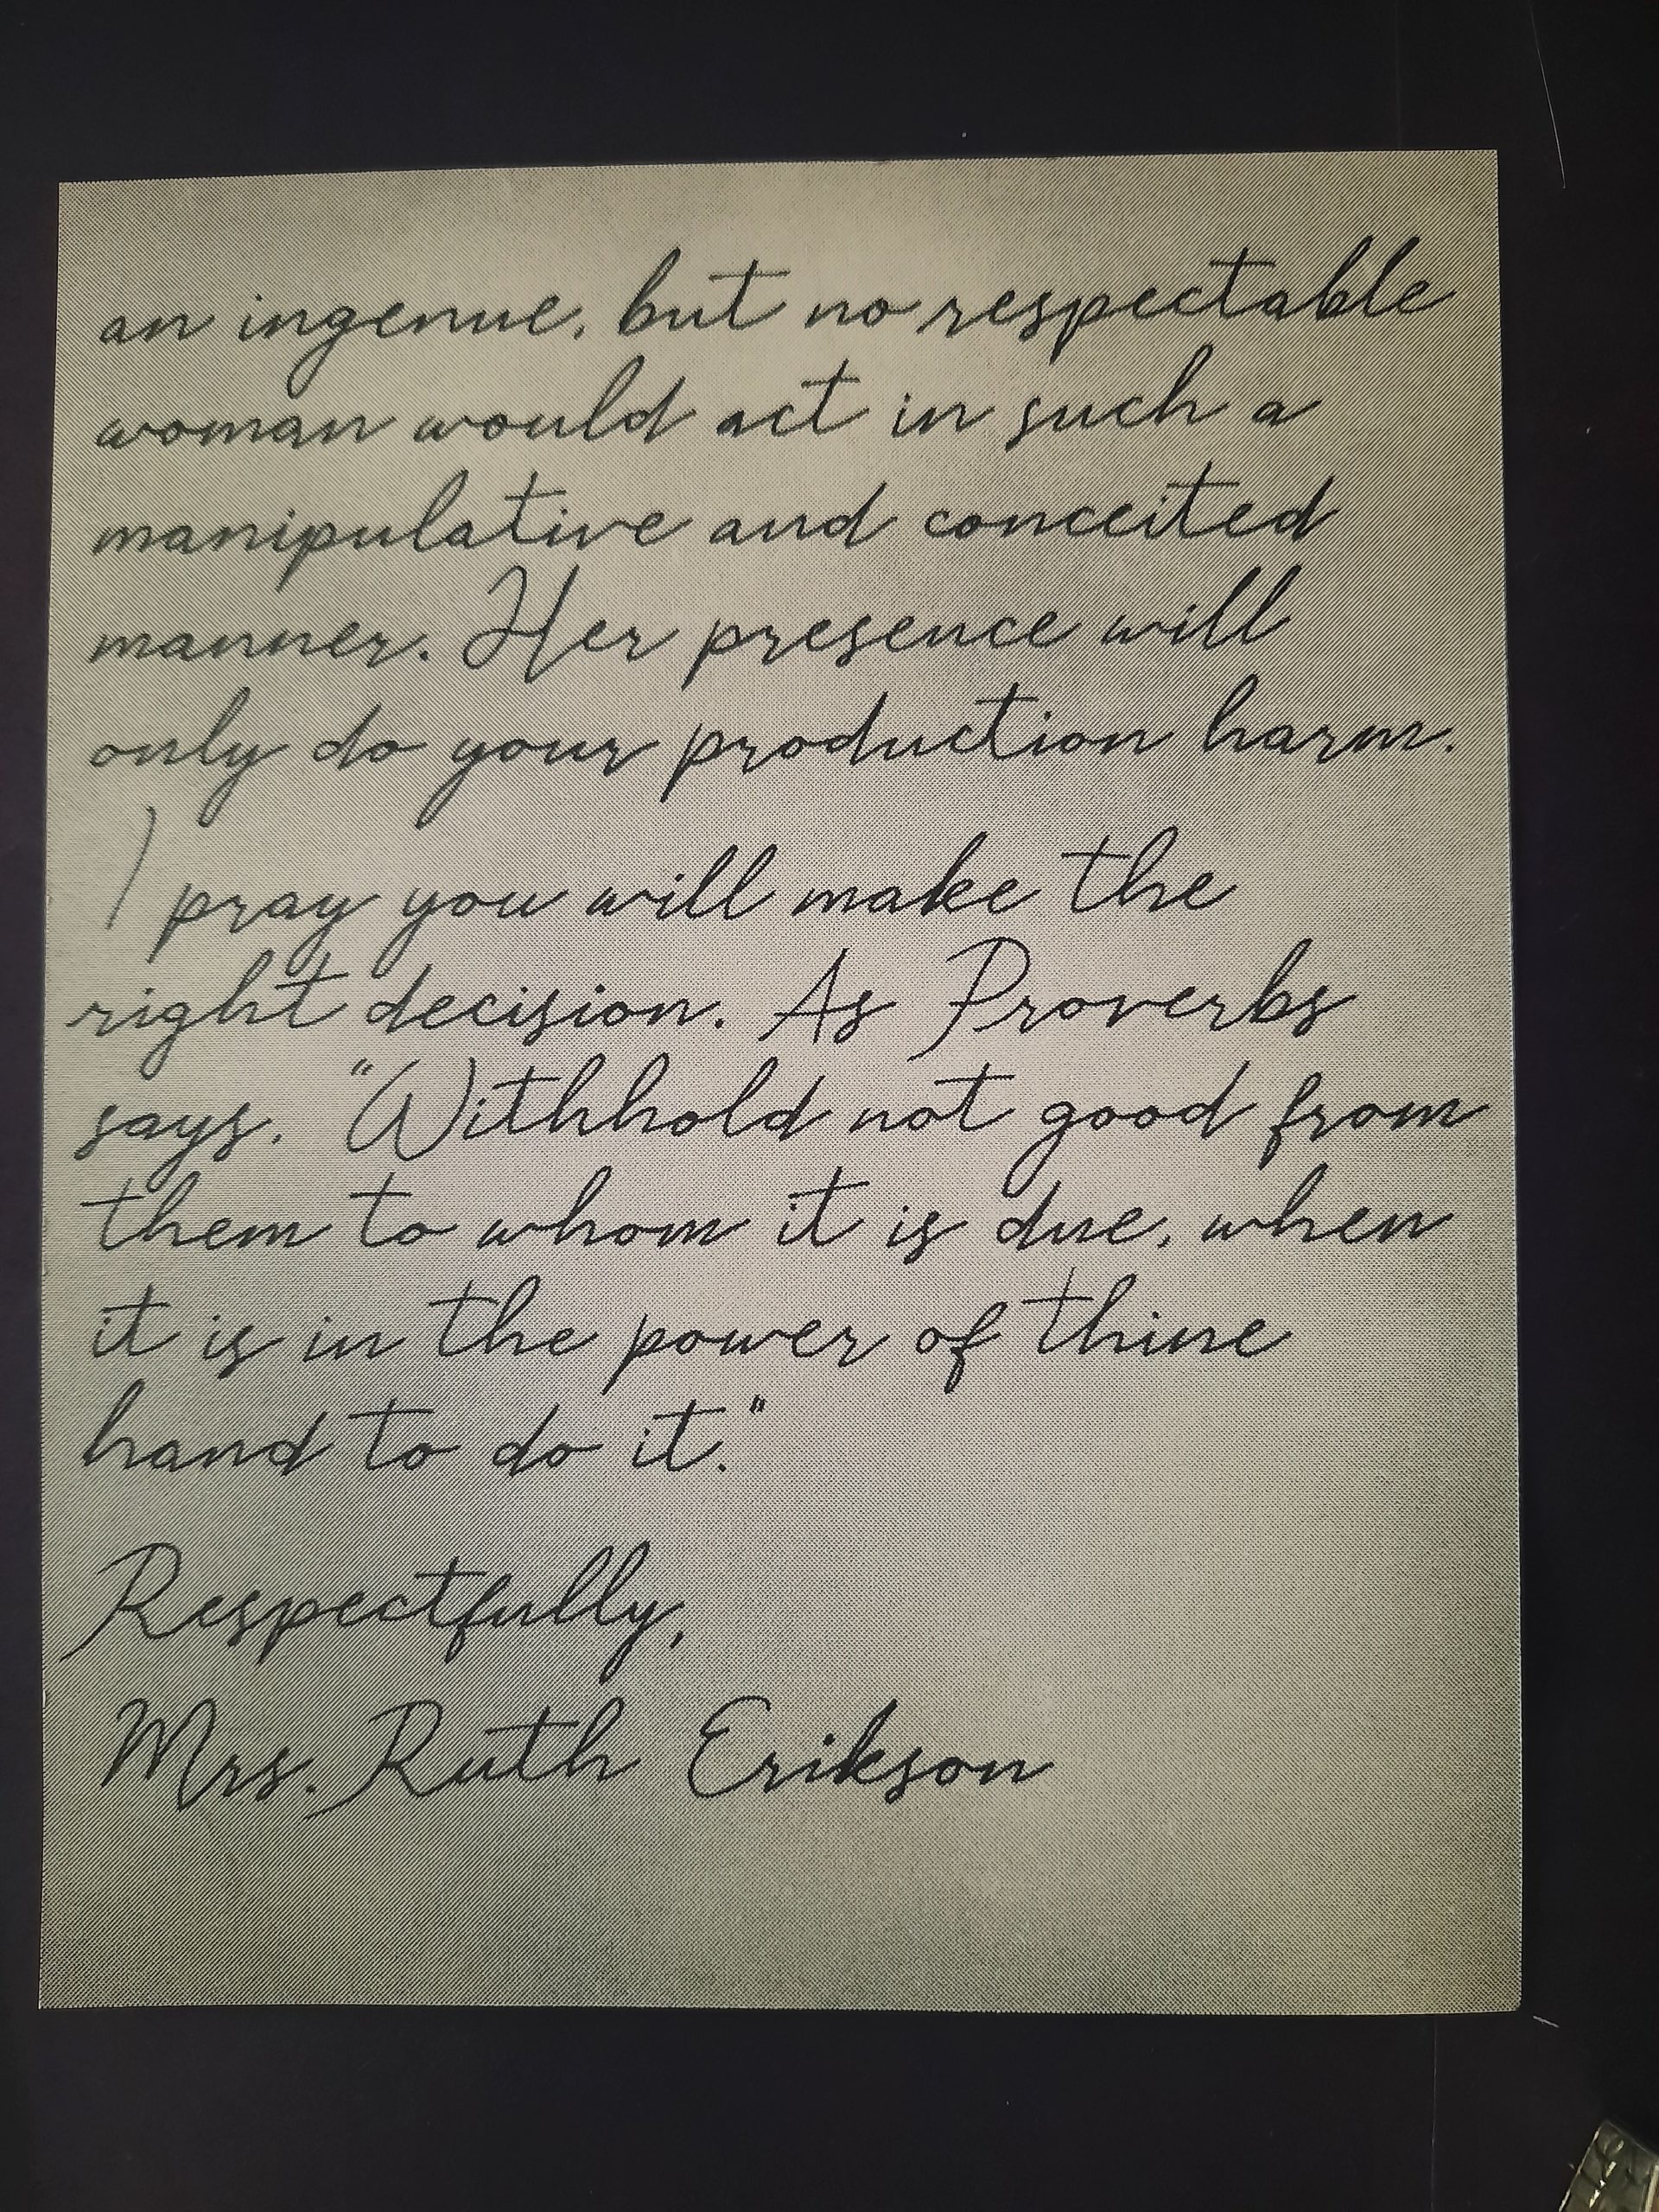 an ingenue, but no respectable
woman would act in such a
manipulative and conceited
manner. Her presence will
only do your production harm.
I pray you will make the
right decision. As Proverbs
says, "Withhold not good from
them to whom it is due, when
it is in the power of thine
hand to do it."
Respectfully,
Mrs. Ruth Erikson